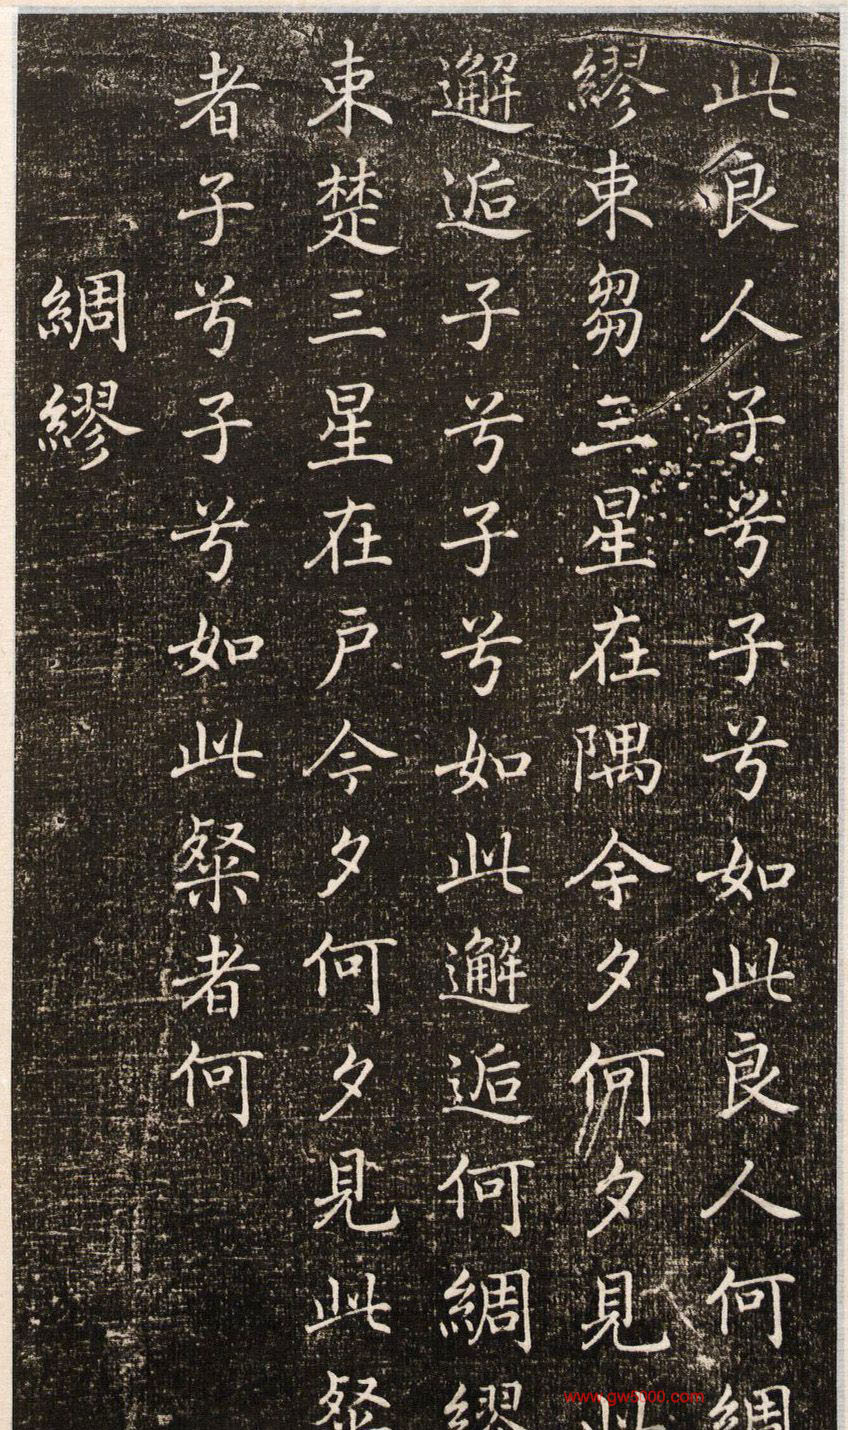 此良人子兮子兮如此良人何綢
繆束芻三星在隅今夕何夕見此
邂逅子兮子兮如此邂逅何綢繆
束楚三星在戶今夕何夕見此粲
者子兮子兮如此粲者何
綢繆
www.gw5000.com